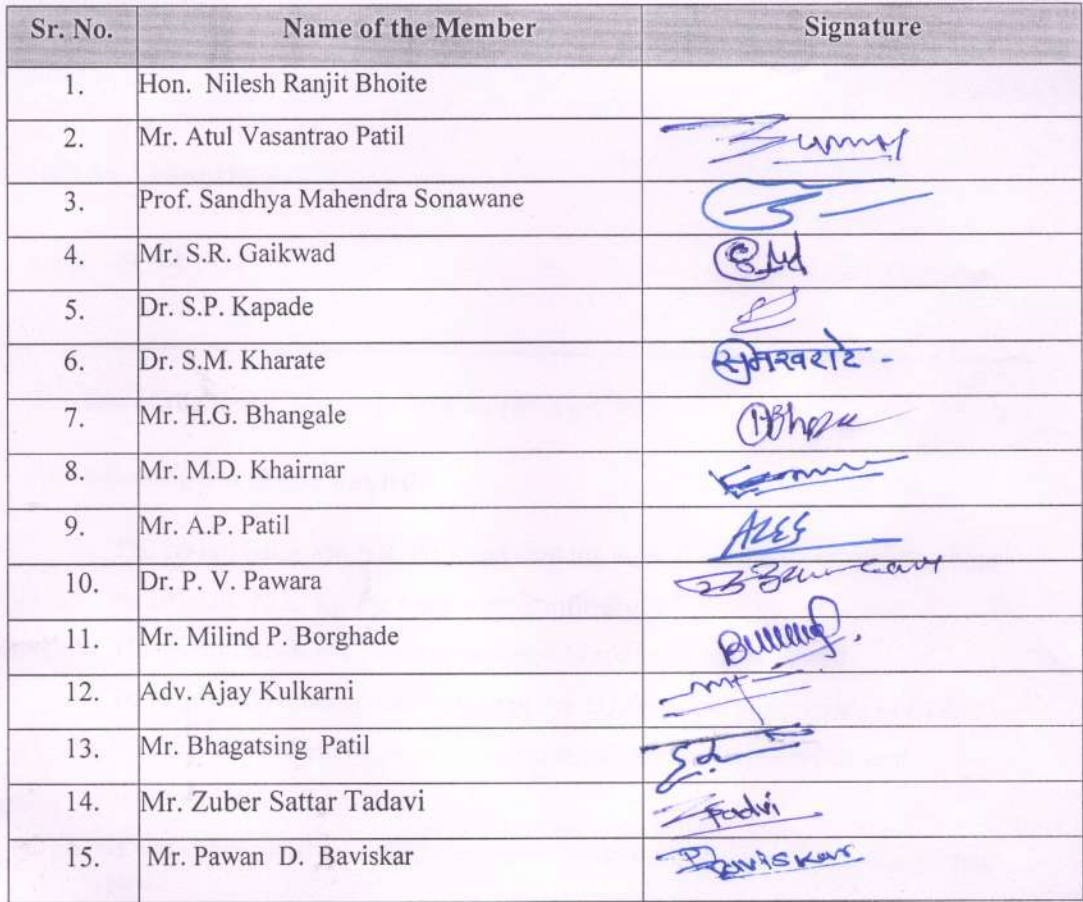 Sr. No. Name of the Member Signature
1. Hon. Nilesh Ranjit Bhoite
2. Mr. Atul Vasantrao Patil
3. Prof. Sandhya Mahendra Sonawane
4. Mr. S.R. Gaikwad
5. Dr. S.P. Kapade
6. Dr. S.M. Kharate
7. Mr. H.G. Bhangale
8. Mr. M.D. Khairnar
9. Mr. A.P. Patil
10. Dr. P. V. Pawara
11. Mr. Milind P. Borghade
12. Adv. Ajay Kulkarni
13. Mr. Bhagatsing Patil
14. Mr. Zuber Sattar Tadavi Tadvi
15. Mr. Pawan D. Baviskar PBaviskar